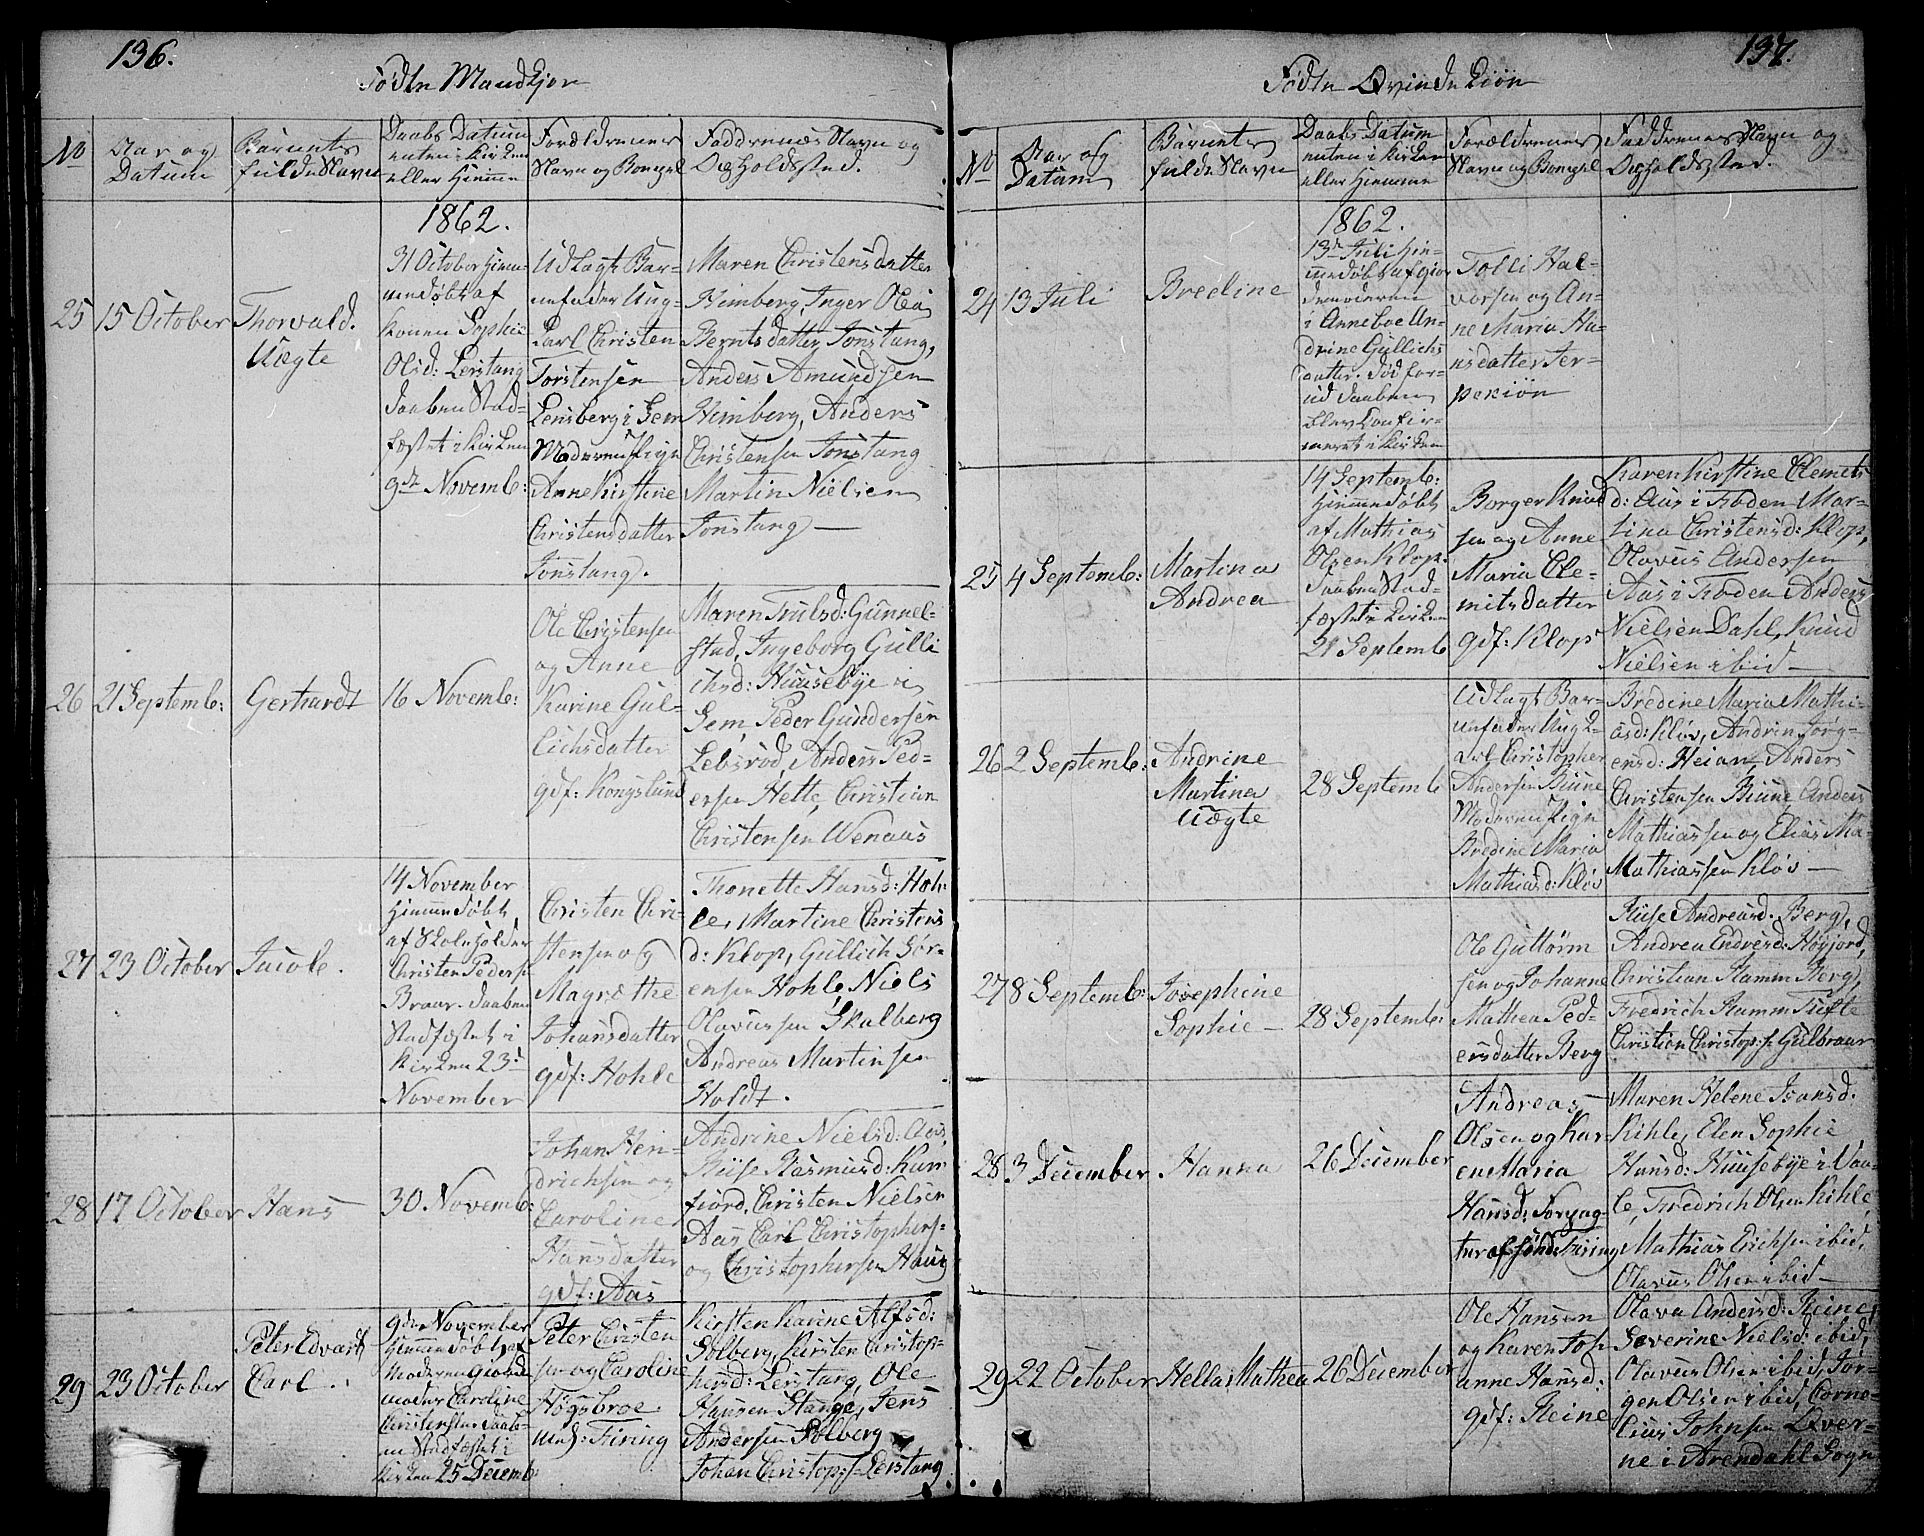 136.
Fødte Mandkjøn
No
Aar og
Datum
Barnets
fulde Navn
Daabs Datum
enten i Kirken
eller Hjemme
Forældrenes
Navn og Bopæl
Faddernes Navn og
Opholdssted.
1862.
25
15 October
Thorvald.
Uægte
31 October Hjem-
medøbt af
Konen Sophie
Olsd: Lerstang
Daaben Stad-
fæstet i Kirken
9de Novemb:
Udlagt Bar-
nefader Ung-
Karl Christen
Torstensen
Lensberg i Sem
Moderen Pigen
Anne Kirstine
Christensdatter
Tonstang.
Maren Christensdatter
Himberg, Inger Olea
Berntsdatter Tonstang,
Anders Amundsen
Himberg, Anders
Christensen Tonstang
Martin Nielsen
Tonstang —
26
21 Septemb:
Gerhardt
16 Novemb:
Ole Christensen
og Anne
Karine Gul-
lichsdatter
gdf: Kongslund
Maren Trulsd: Gunnel-
stad, Ingeborg Gulli
chsd: Huusebye i
Sem, Peder Gundersen
Lebsrød Anders Ped-
ersen Hette, Christian
Christensen Wenaas
27
23 October
Jacob.
14 November
Hjemmedøbt
af Skoleholder
Christen Peders.
Braar. Daaben
Stadfæstet i
Kirken 23d
November
Christen Chri-
stensen og
Magrethe
Johansdatter
gdf: Hohle
Thonette Hansd: Hoh-
le, Martine Christens
d: Klop, Gullich Sør-
ensen Hohle, Niels
Olavussen Skalberg
Andreas Martinsen
Holdt.
28
17 October
Hans
30. Novemb:
Johan Hen-
drichsen og
Caroline
Hansdatter
gdf: Aas
Andrine Nielsd: Aas,
Rasmusd:
fiord, Christen Nielsen
Aas Carl Christophers-
og Christophersen Haug
29
23 October
Peter Edvart
Carl.
9de November
Hjemmedøbt af
Moderen Gjord
moder Caroline
Christensen Daab-
en Stadfæstet i
Kirken 25 Decemb:
Peter Christen
sen og Caroline
Høgsbroe
Firing
Kirsten Karine Alfsd:
Solberg, Kirsten Christop-
hersd: Lerstang, Ole
Hansen Stange, Jens
Andersen Solberg
Johan Christops: Lerstang
137.
Fødte Qvindekiøn
No
Aar og
Datum
Barnets
fulde Navn
Daabs Datum
enten i Kirken
eller Hjemme
Forældrenes
Navn og Bopæl
Faddernes Navn og
Opholdssted.
1862.
24
13 Juli
Bredine
13de Juli Hjem-
medøbt af Gjor
demoderen
i Anneboe An-
drine Gullichs
datter. Død for-
ud Daaben
blev Confir-
meret i Kirken
Tolli Hal-
vorsen og An-
ne Maria Ha-
nsdatter Ter-
pekiøn
25
4 Septemb:
Martina
Andrea
14 Septemb:
Hjemmedøbt
af Mathias
Olsen Klop.
Daaben Stad-
fæstet i Kirken
21 Septemb
Borger Knud
sen og Anne
Maria Cle-
mitsdatter
gdf: Klop
Karen Kirstine Clemets
d: Aas i Foden Mar-
tina Christensd: Klop,
Olavus Andersen
Aas i Foden Anders
Nielsen Dahl, Knud
Nielsen ibid —
26
2 Septemb:
Andrine
Martina
Uægte
28 Septemb
Udlagt Bar-
nefader Ungk-
arl Christopher
Andersen Biune
Moderen Pigen
Bredine Maria
Mathiasd: Kløv
Bredine Maria Mathi-
asd: Kløv, Andrin Jørg-
ensd: Heian, Anders
Christensen Biune, Anders
Mathiassen og Elias Ma-
Mathiassen Kløv —
27
8 Septemb:
Josephine
Sophie —
28 Septemb:
Ole Guttorm
sen og Johanne
Mathea Ped-
ersdatter Berg
Andreasd. Berg,
Andrea Endresd: Høyjord,
Christian Ramm Berg,
Fredrich Ramm Tufte
Christian Christop:s. Gulbraar
28
3 December
Hanna
26 December
Andreas
Olsen og Kar-
en Maria
Hansd: Forpag-
ter af Søndr Firing
Maren Helene Isansd.
Kihle, Elen Sophie
Hansd: Huusebye i Vaa-
le, Fredrich Olsen Kihle
Mathias Erichsen ibid,
Olavus Olsen ibid —
29
22 October
Hella Mathea
26 December
Ole Hansen
og Karen Joh
anne Hansd:
gdf: Reine
Olava Andersd: Reine,
Severine Nielsd: ibid,
Olavus Olsen ibid, Jør-
gen Olsen ibid, Corne-
lius Johnsen Qver-
ne i Arendahl Sogn